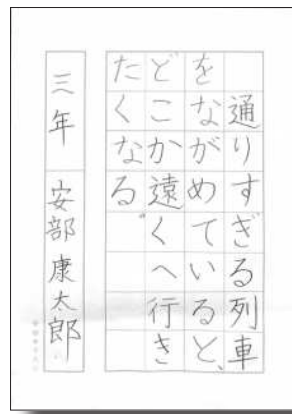 通りすぎる列車
をながめていると、
どこか遠くへ行き
たくなる。
三年 安部康太郎